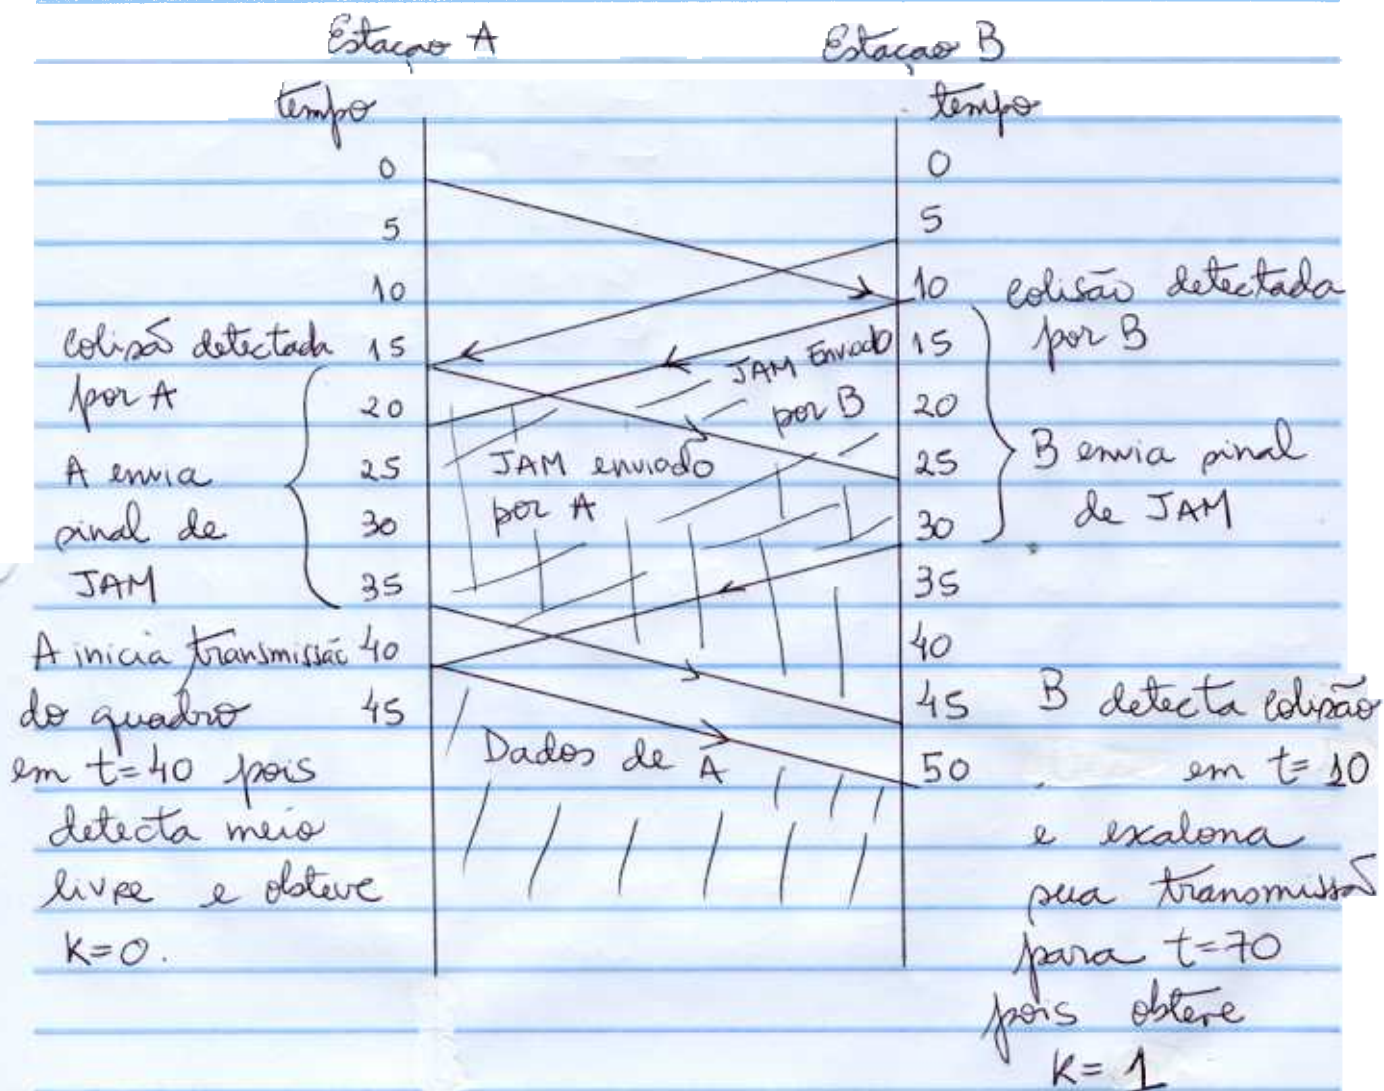 Estação A
Estação B
tempo
tempo
0
5
10
15
20
25
30
35
40
45
0
5
10
15
20
25
30
35
40
45
50
colisão detectada
por A
A envia
sinal de
JAM
A inicia transmissão
do quadro
em t=40 pois
detecta meio
livre e obteve
K=0.
JAM Enviado
por B
JAM enviado
por A
Dados de A
colisão detectada
por B
B envia sinal
de JAM
B detecta colisão
em t=10
e escalona
sua transmissão
para t=70
pois obteve
K=1